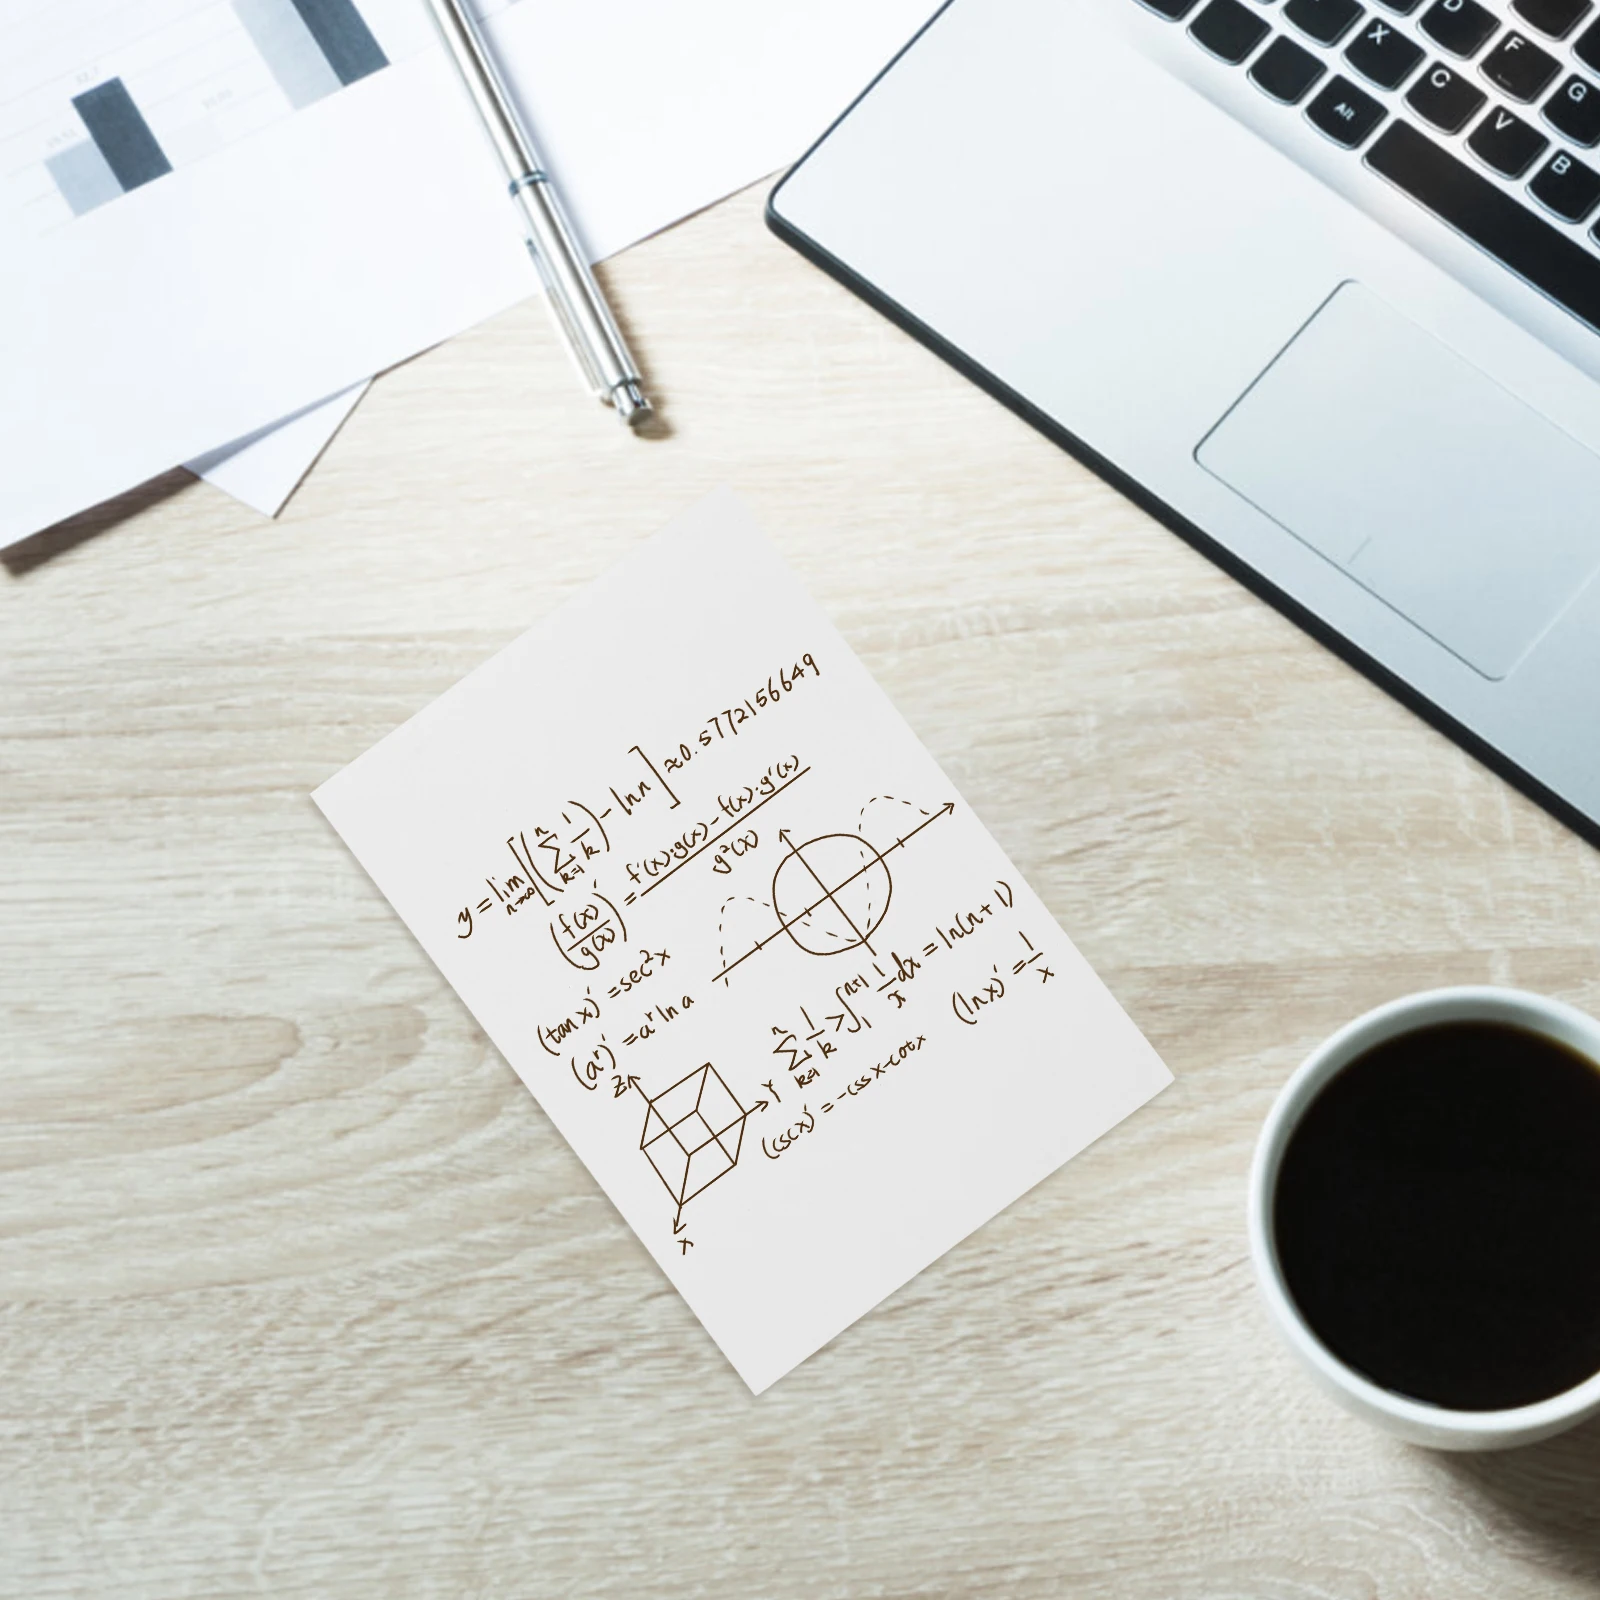 y = lim n→∞ [(∑ n k=1 1/k) - ln n] ≈ 0.5772156649
(f(x)/g(x))' = f'(x)·g(x) - f(x)·g'(x) / g²(x)
(tan x)' = sec² x
(aˣ)' = aˣ ln a
∑ n k=1 1/k > ∫ n+1 1 1/x dx = ln(n+1)
(ln x)' = 1/x
(csc x)' = -csc x·cot x
Z
Y
X
D
X
F
C
G
Alt
V
B